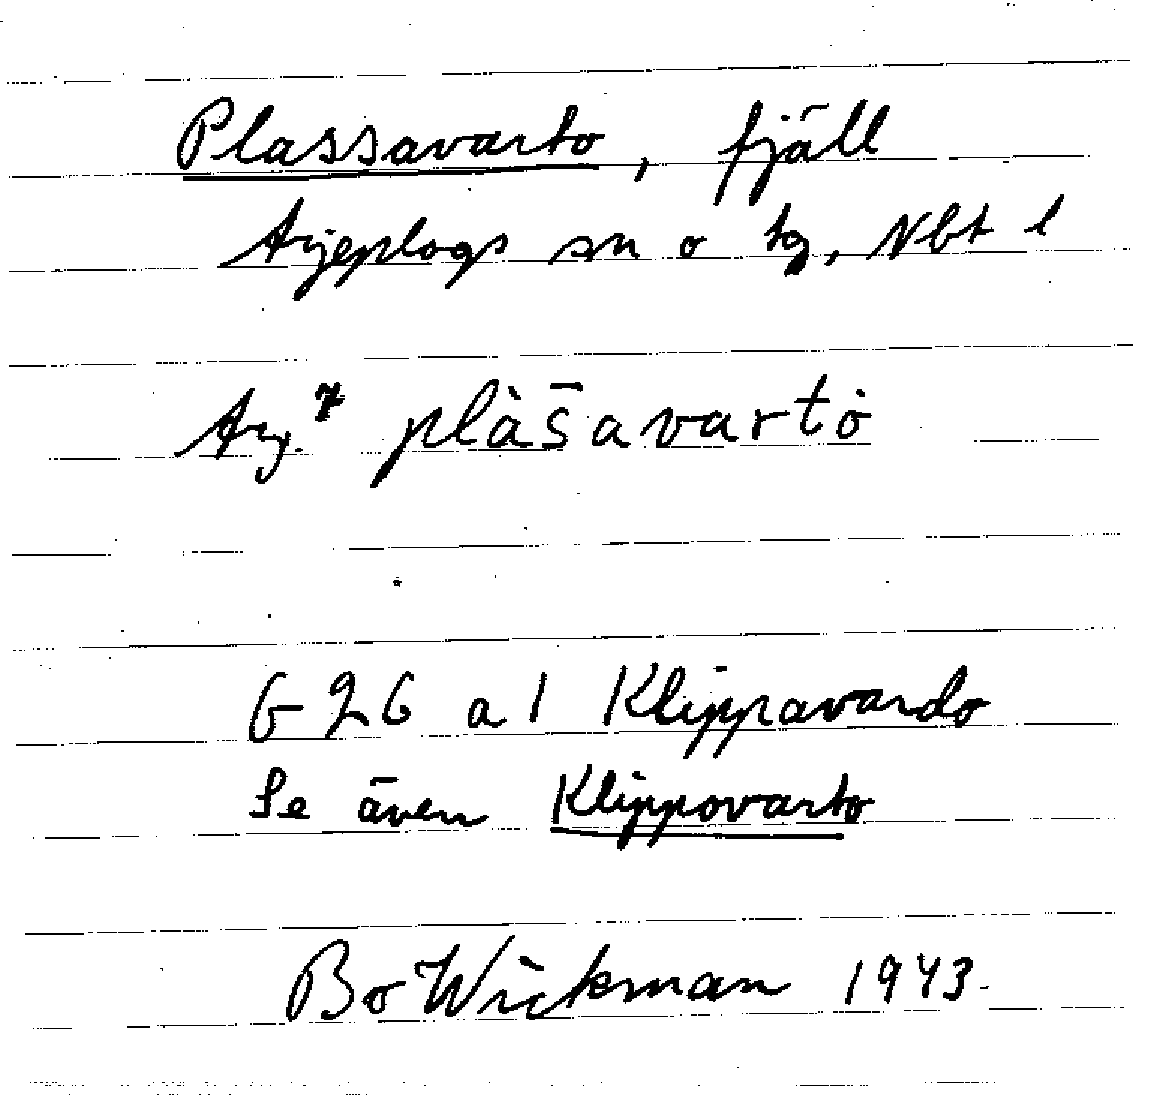 Plassavarto, fjäll
Arjeplogs sn o tg, Nbt l
Arj. 7 plàs̄avartȯ
G 26 a 1 Klippavardo
Se även Klippovarto
Bo Wickman 1943.